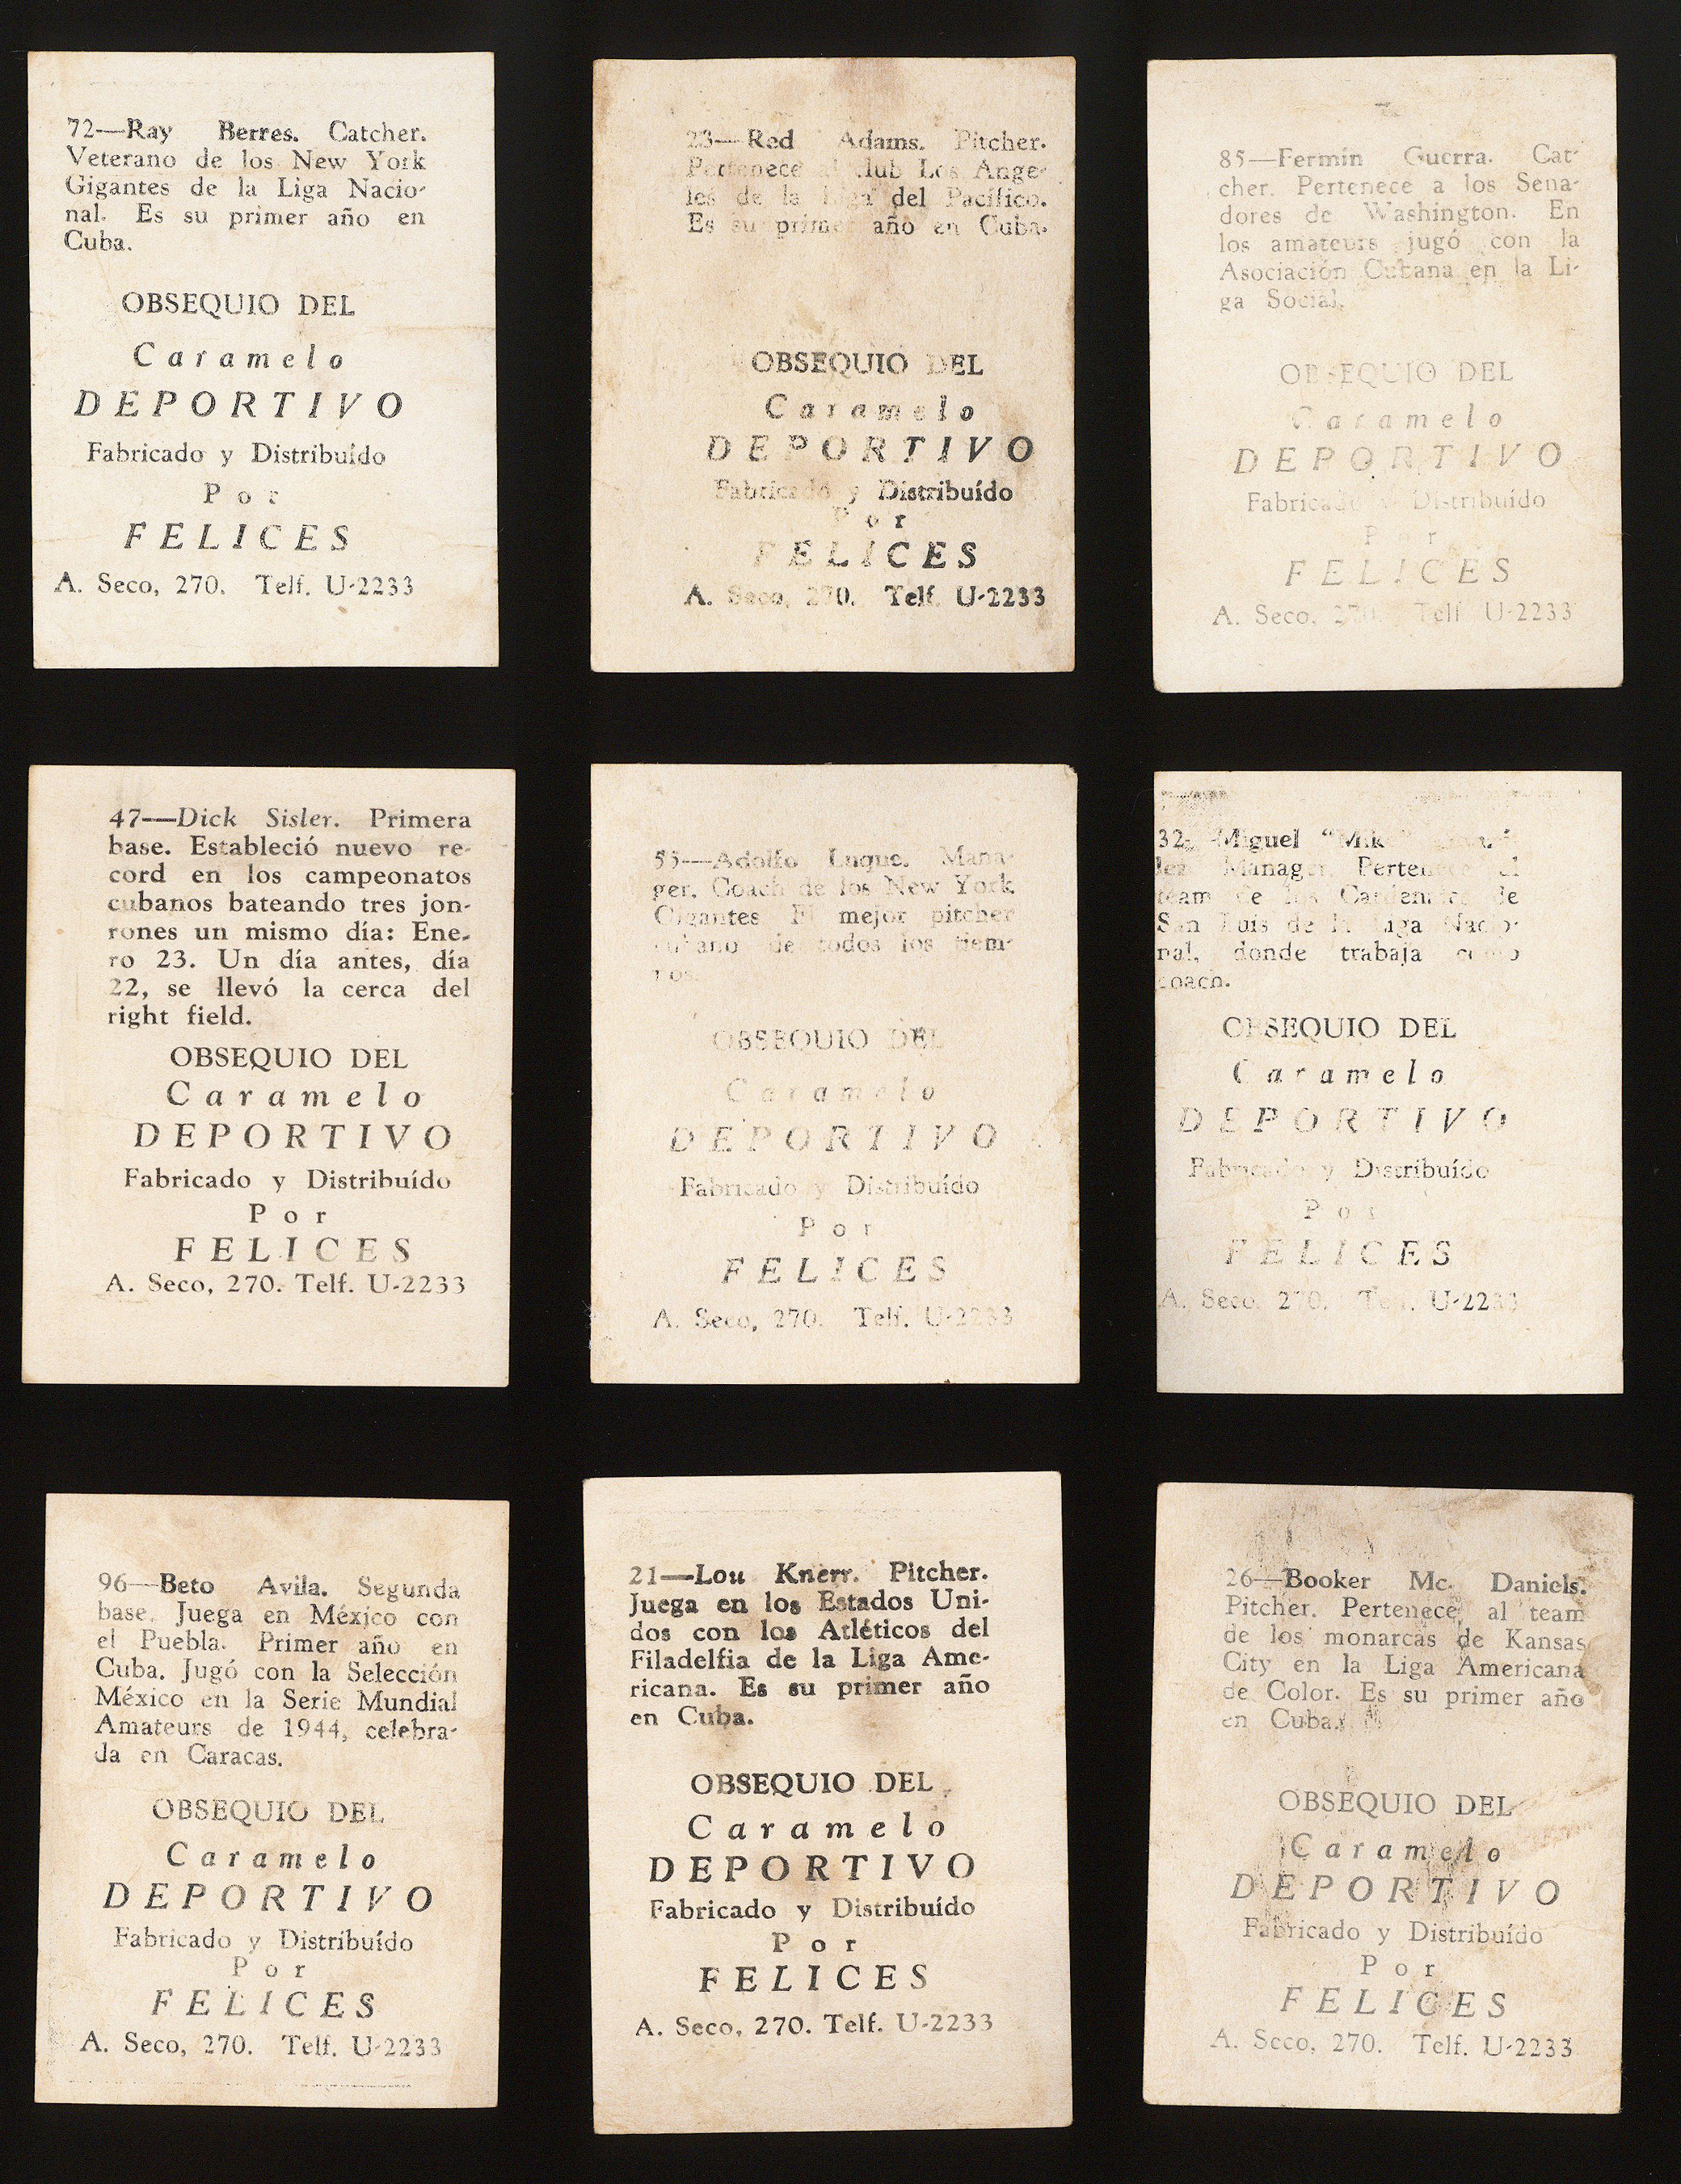 72—Ray Berres. Catcher.
Veterano de los New York
Gigantes de la Liga Nacio-
nal. Es su primer año en
Cuba.
OBSEQUIO DEL
Caramelo
DEPORTIVO
Fabricado y Distribuído
Por
FELICES
A. Seco, 270. Telf. U-2233
23—Red Adams. Pitcher.
Pertenece al club Los Ange-
les de la Liga del Pacífico.
Es su primer año en Cuba.
OBSEQUIO DEL
Caramelo
DEPORTIVO
Fabricado y Distribuído
Por
FELICES
A. Seco, 270. Telf. U-2233
85—Fermín Guerra. Cat-
cher. Pertenece a los Sena-
dores de Washington. En
los amateurs jugó con la
Asociación Cubana en la Li-
ga Social.
OBSEQUIO DEL
Caramelo
DEPORTIVO
Fabricado y Distribuído
Por
FELICES
A. Seco, 270. Telf U-2233
47—Dick Sisler. Primera
base. Estableció nuevo re-
cord en los campeonatos
cubanos bateando tres jon-
rones un mismo día: Ene-
ro 23. Un día antes, día
22, se llevó la cerca del
right field.
OBSEQUIO DEL
Caramelo
DEPORTIVO
Fabricado y Distribuído
Por
FELICES
A. Seco, 270. Telf. U-2233
55—Adolfo Luque. Mana-
ger. Coach de los New York
Gigantes El mejor pitcher
cubano de todos los tiem-
pos.
OBSEQUIO DEL
Caramelo
DEPORTIVO
Fabricado y Distribuído
Por
FELICES
A. Seco, 270. Telf. U-2233
32- Miguel "Mike"
Manager. Pertenece al
team de los Cardenales de
San Luis de la Liga Nacio-
nal, donde trabaja como
coach.
OBSEQUIO DEL
Caramelo
DEPORTIVO
Fabricado y Distribuído
Por
FELICES
A. Seco, 270. Telf. U-2233
96—Beto Avila. Segunda
base. Juega en México con
el Puebla. Primer año en
Cuba. Jugó con la Selección
México en la Serie Mundial
Amateurs de 1944, celebra-
da en Caracas.
OBSEQUIO DEL
Caramelo
DEPORTIVO
Fabricado y Distribuído
Por
FELICES
A. Seco, 270. Telf. U-2233
21—Lou Knerr. Pitcher.
Juega en los Estados Uni-
dos con los Atléticos del
Filadelfia de la Liga Ame-
ricana. Es su primer año
en Cuba.
OBSEQUIO DEL
Caramelo
DEPORTIVO
Fabricado y Distribuído
Por
FELICES
A. Seco, 270. Telf. U-2233
26—Booker Mc. Daniels.
Pitcher. Pertenece al team
de los monarcas de Kansas
City en la Liga Americana
de Color. Es su primer año
en Cuba.
OBSEQUIO DEL
Caramelo
DEPORTIVO
Fabricado y Distribuído
Por
FELICES
A. Seco, 270. Telf. U-2233